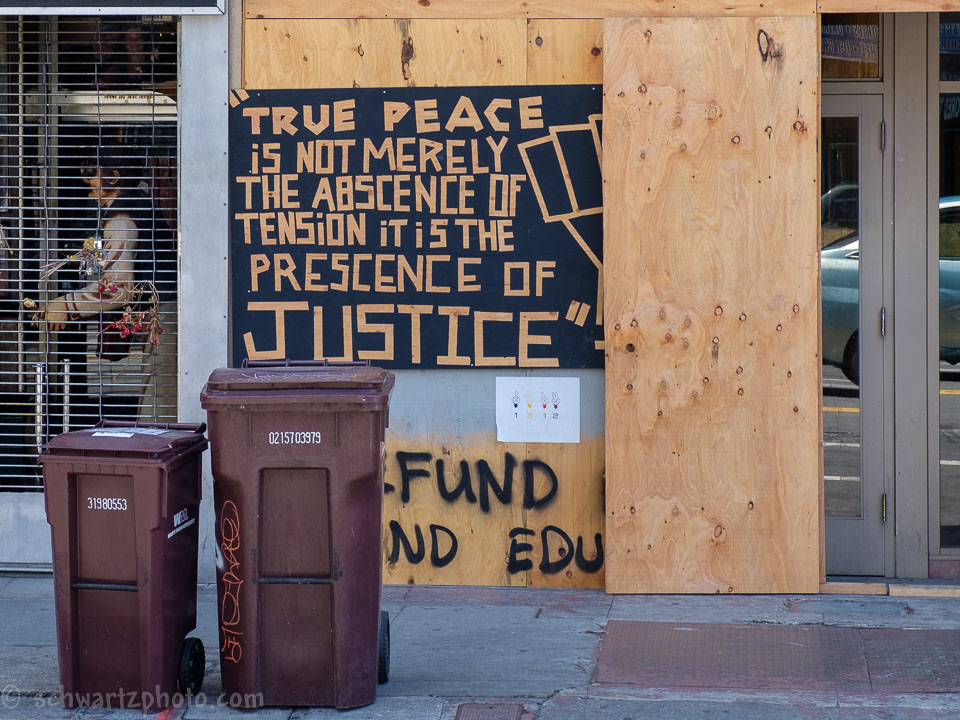 "TRUE PEACE
iS NOT MERELY
THE ABSCENCE OF
TENSiON iT iS THE
PRESCENCE OF
JUSTICE"
1 3 1 2
0215703979
31980553
WM
EFUND
ND EDU
© schwartzphoto.com